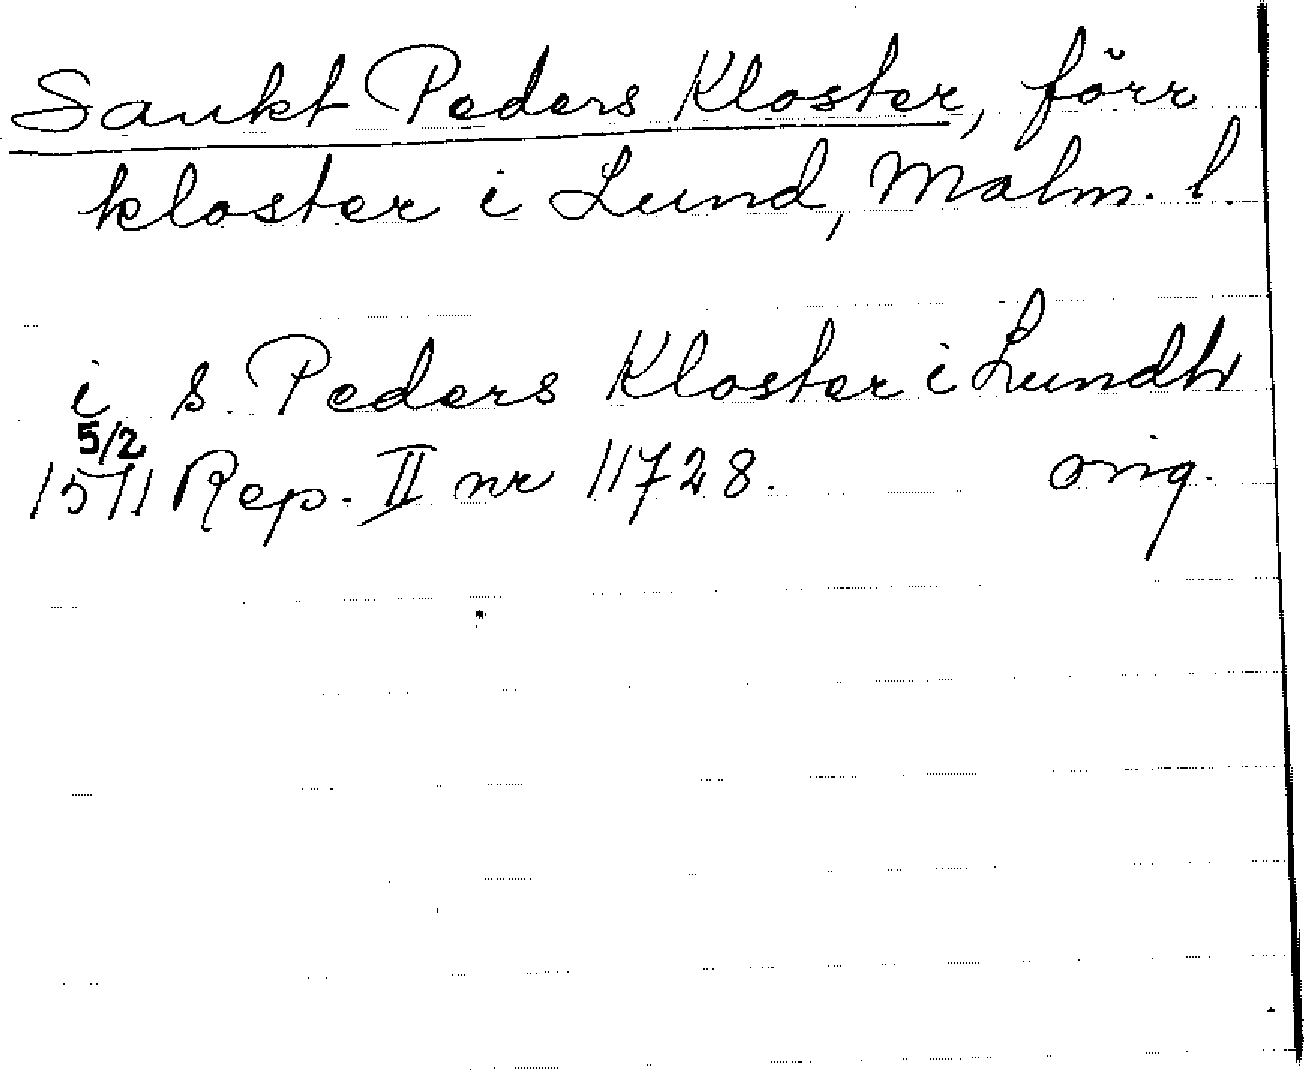 Sankt Peders Kloster, förr
kloster i Lund, Malm. l.
i S. Peders Kloster i Lundh
5/2
1571 Rep. II nr 11728. orig.